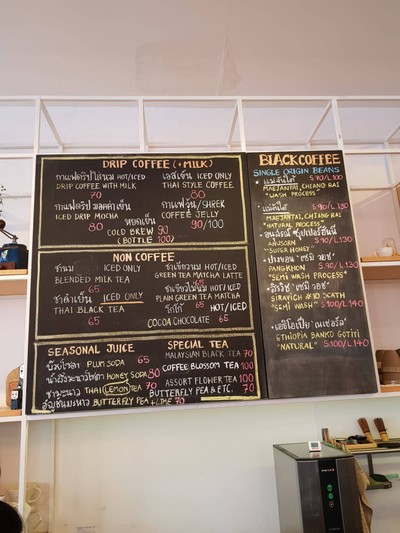 DRIP COFFEE (+MILK)
กาแฟดริปใส่นม HOT/ICED
DRIP COFFEE WITH MILK
70
เอสเย็น ICED ONLY
THAI STYLE COFFEE
80
กาแฟดริปมอคค่าเย็น
ICED DRIP MOCHA
80
กาแฟวุ้น/SHREK
COFFEE JELLY
90/100
หยดเย็น
COLD BREW 90
(BOTTLE 100)
NON COFFEE
ชานม ICED ONLY
BLENDED MILK TEA
65
ชาดำเย็น ICED ONLY
THAI BLACK TEA
65
ชาเขียวนม HOT/ICED
GREEN TEA MATCHA LATTE
65
HOT/ICED
PLAIN GREEN TEA MATCHA
65
โกโก้ HOT/ICED
COCOA CHOCOLATE 65
SEASONAL JUICE
บ๊วยโซดา PLUM SODA 65
น้ำผึ้งมะนาวโซดา HONEY SODA 80
ชามะนาว THAI LEMON TEA 70
อัญชันมะนาว BUTTERFLY PEA + LIME 70
SPECIAL TEA
MALAYSIAN BLACK TEA 70
COFFEE BLOSSOM TEA 100
ASSORT FLOWER TEA 100
BUTTERFLY PEA & ETC. 70
BLACK COFFEE
SINGLE ORIGIN BEANS
• แม่จันใต้ S 90/L 100
MAEJANTAI, CHIANG RAI
"WASH PROCESS"
• แม่จันใต้ S 90/L 130
MAEJANTAI, CHIANG RAI
"NATURAL PROCESS"
• อนุสรณ์ "ซุปเปอร์ฮันนี่"
ANUSORN S 90/L 130
"SUPER HONEY"
• ปางขอน "เซมิ วอช"
PANGKHON S 90/L 130
"SEMI WASH PROCESS"
• สิรวิชญ์ "เซมิ วอช"
SIRAVICH #10 SCATH
"SEMI WASH" S 100/L 140
• เอธิโอเปีย "เนเชอรัล"
ETHIOPIA BANKO GOTITI
"NATURAL" S 100/L 140